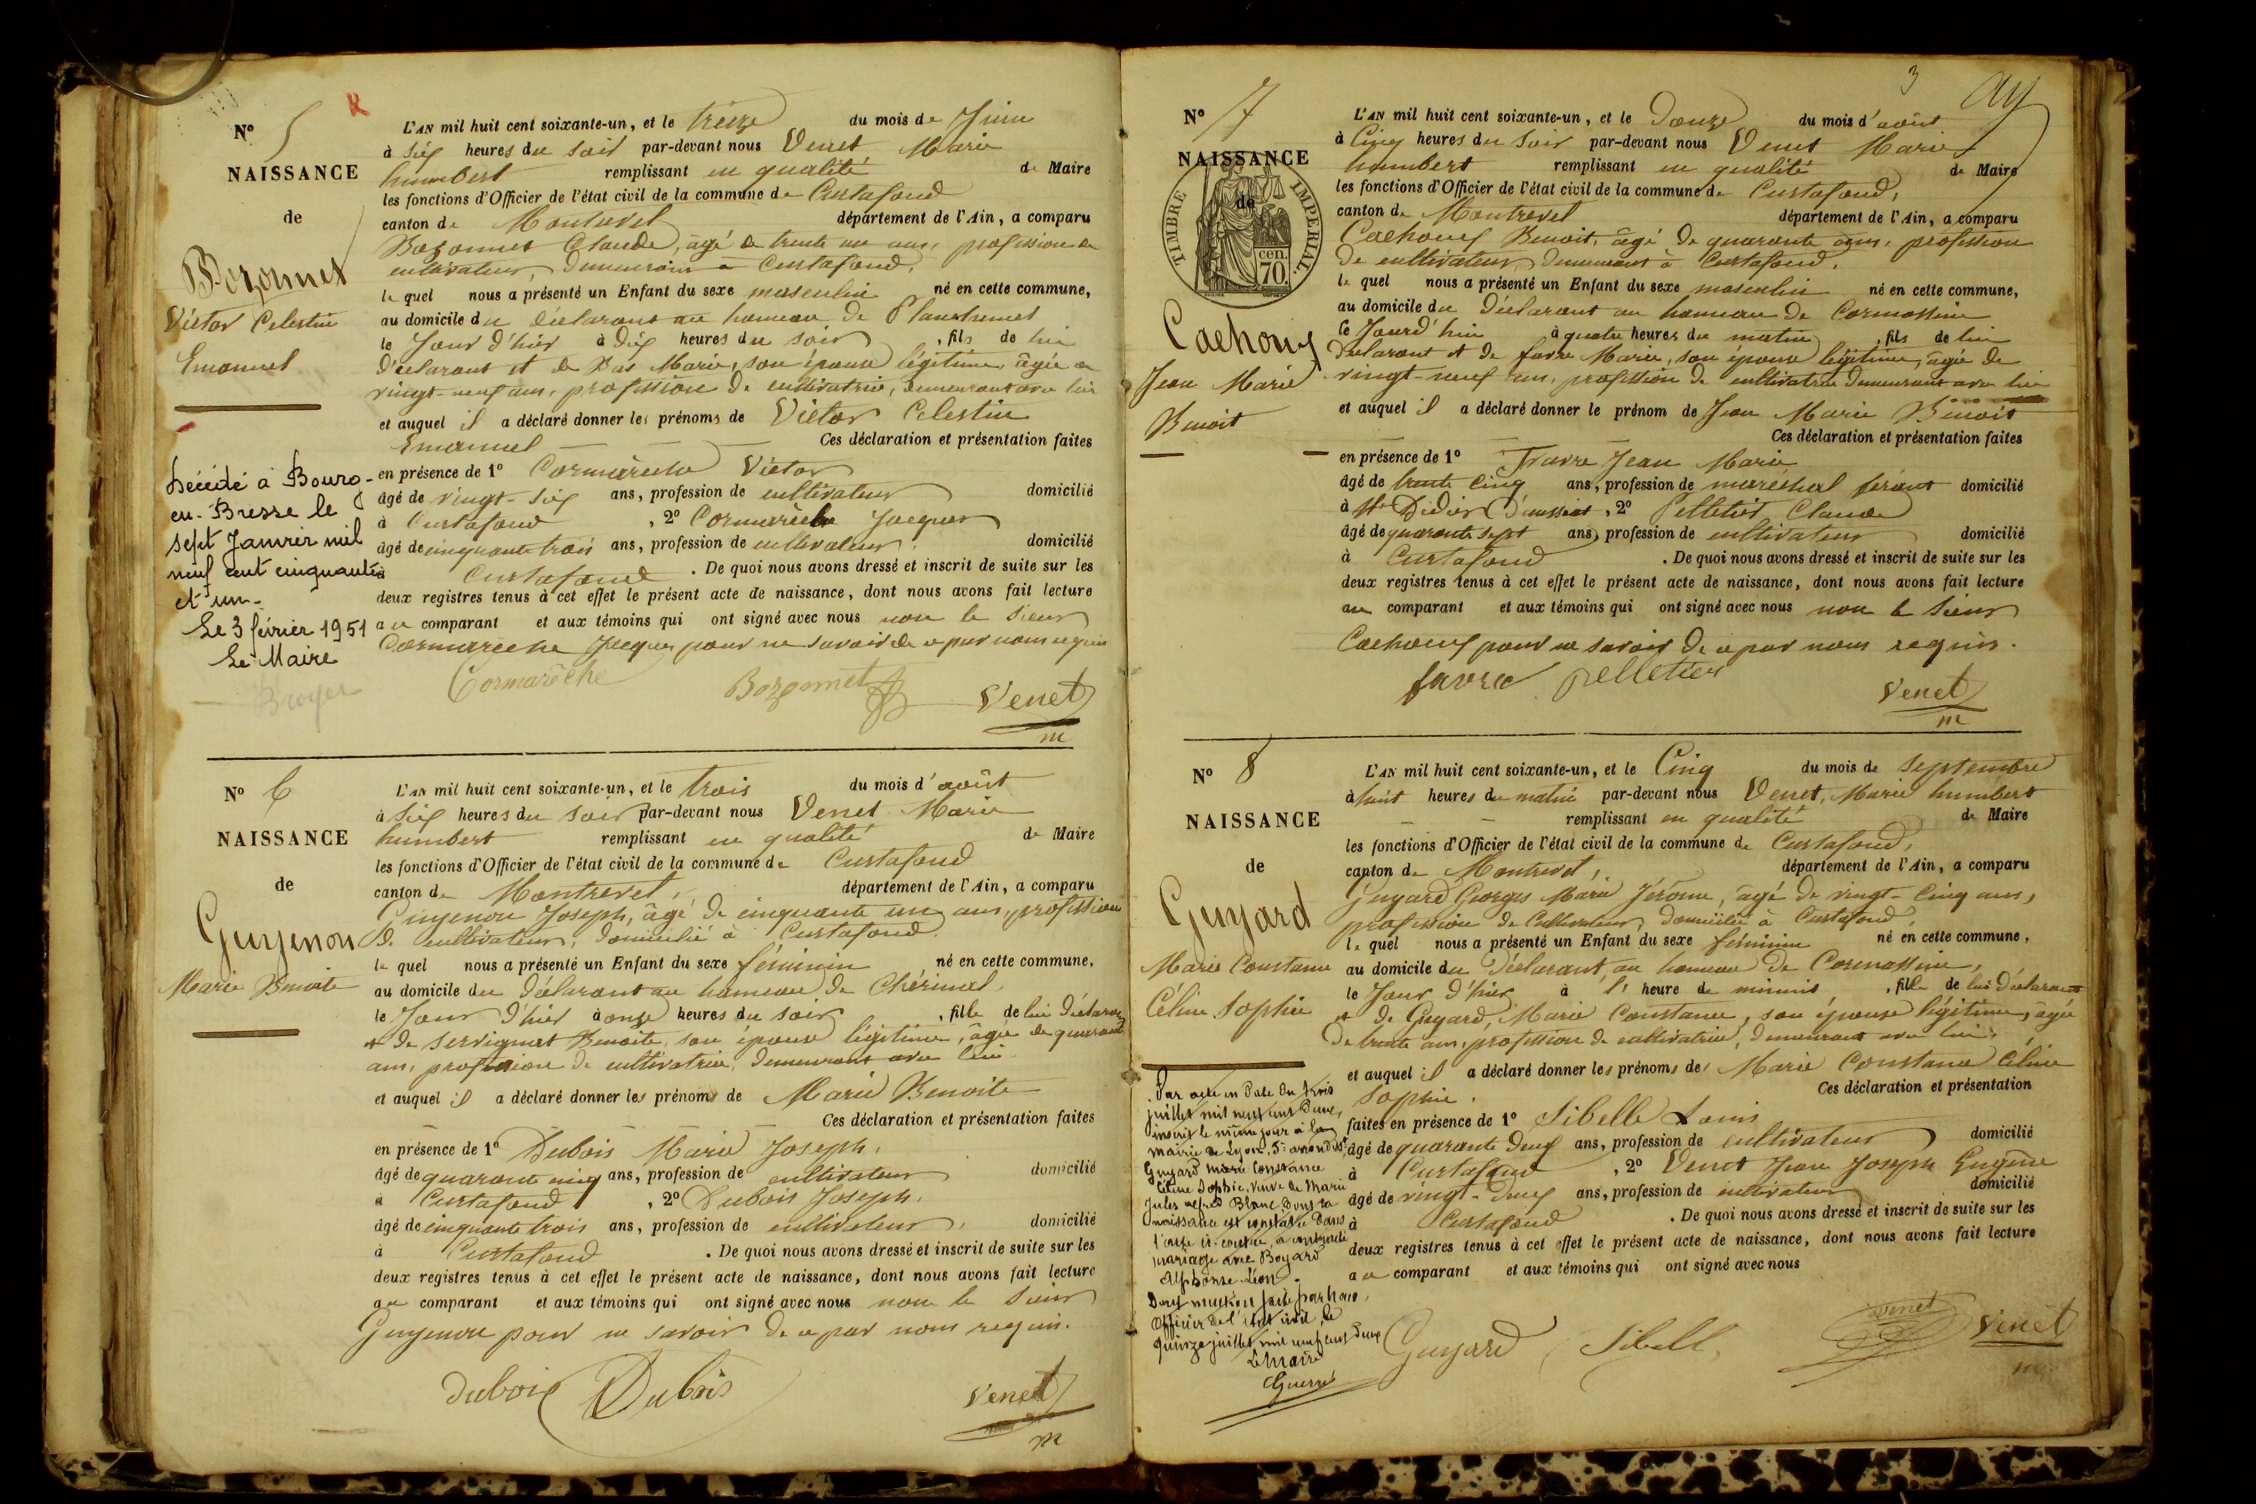 N° 5
NAISSANCE
de
Bozonnet
Victor Celestin
Emanuel
Décédé à Bourg-
en-Bresse le
sept Janvier mil
neuf cent cinquante
et un.
Le 3 février 1951
Le Maire
Broyer
L'AN mil huit cent soixante-un, et le treize du mois de Juin
à six heures du soir par-devant nous Venet Marie
humbert remplissant en qualité de Maire
les fonctions d'Officier de l'état civil de la commune de Curtafond
canton de Montrevel département de l'Ain, a comparu
Bozonnet Claude, âgé de trente un ans, profession de
cultivateur, demeurant à Curtafond,
le quel nous a présenté un Enfant du sexe masculin né en cette commune,
au domicile du déclarant au hameau de
le Jour d'hier à dix heures du soir, fils de lui
déclarant et de Bas Marie, son épouse légitime, âgée de
vingt-neuf ans, profession de cultivatrice, demeurant avec lui
et auquel il a déclaré donner les prénoms de Victor Celestin
Emanuel Ces déclaration et présentation faites
en présence de 1° Cormarèche Victor
âgé de vingt-six ans, profession de cultivateur domicilié
à Curtafond, 2° Cormarèche Jacques
âgé de cinquante trois ans, profession de cultivateur, domicilié
à Curtafond. De quoi nous avons dressé et inscrit de suite sur les
deux registres tenus à cet effet le présent acte de naissance, dont nous avons fait lecture
au comparant et aux témoins qui ont signé avec nous non le sieur
Cormarèche Jacques pour ne savoir de ce par nous requis
Cormarêche Bozonnet Venet
m
N° 6
NAISSANCE
de
Guyenon
Marie Benoite
L'AN mil huit cent soixante-un, et le trois du mois d'août
à six heures du soir par-devant nous Venet Marie
humbert remplissant en qualité de Maire
les fonctions d'Officier de l'état civil de la commune de Curtafond
canton de Montrevel, département de l'Ain, a comparu
Guyenon Joseph, âgé de cinquante un ans, profession
de cultivateur, domicilié à Curtafond
le quel nous a présenté un Enfant du sexe féminin né en cette commune,
au domicile du déclarant au hameau de Chérinal,
le Jour d'hier à onze heures du soir, fille de lui déclarant
et de Servignat Benoite, son épouse légitime, âgée de quarante
ans, profession de cultivatrice, demeurant avec lui
et auquel il a déclaré donner les prénoms de Marie Benoite
Ces déclaration et présentation faites
en présence de 1° Dubois Marie Joseph,
âgé de quarante cinq ans, profession de cultivateur domicilié
à Curtafond, 2° Dubois Joseph,
âgé de cinquante trois ans, profession de cultivateur, domicilié
à Curtafond. De quoi nous avons dressé et inscrit de suite sur les
deux registres tenus à cet effet le présent acte de naissance, dont nous avons fait lecture
au comparant et aux témoins qui ont signé avec nous non le sieur
Guyenon pour ne savoir de ce par nous requis.
dubois Dubois Venet
m
3
N° 7
NAISSANCE
de
TIMBRE IMPERIAL.
cen.
70.
Cachouy
Jean Marie
Benoit
L'AN mil huit cent soixante-un, et le douze du mois d'août
à Cinq heures du soir par-devant nous Venet Marie
humbert remplissant en qualité de Maire
les fonctions d'Officier de l'état civil de la commune de Curtafond,
canton de Montrevel département de l'Ain, a comparu
Cachouy Benoit, âgé de quarante ans, profession
de cultivateur, demeurant à Curtafond,
le quel nous a présenté un Enfant du sexe masculin né en cette commune,
au domicile du déclarant au hameau de Cormassine
Ce Jourd'hui à quatre heures du matin, fils de lui
déclarant et de favre Marie, son épouse légitime, âgée de
vingt-neuf ans, profession de cultivatrice demeurant avec lui
et auquel il a déclaré donner le prénom de Jean Marie Benoit
Ces déclaration et présentation faites
en présence de 1° Favre Jean Marie
âgé de trente cinq ans, profession de maréchal férant domicilié
à St Didier d'aussiat, 2° Pelletier Claude
âgé de quarante sept ans, profession de cultivateur domicilié
à Curtafond. De quoi nous avons dressé et inscrit de suite sur les
deux registres tenus à cet effet le présent acte de naissance, dont nous avons fait lecture
au comparant et aux témoins qui ont signé avec nous non le sieur
Cachouy pour ne savoir de ce par nous requis.
favre pelletier Venet
m
N° 8
NAISSANCE
de
Guyard
Marie Constance
Céline Sophie
Par acte en date du trois
juillet mil neuf cent deux,
inscrit le même jour à la
mairie de Lyon, 5e arrondist,
Guyard Marie Constance
Céline Sophie, veuve de Marie
Jules alfred Blanc, dont la
naissance est constatée dans
l'acte ci-contre, a contracté
mariage avec Boyard
Alphonse Léon.
Dont mention faite par nous
Officier de l'état civil, le
quinze juillet mil neuf cent deux
Le Maire
Guerret
L'AN mil huit cent soixante-un, et le Cinq du mois de septembre
à huit heures du matin par-devant nous Venet, Marie humbert
remplissant en qualité de Maire
les fonctions d'Officier de l'état civil de la commune de Curtafond,
canton de Montrevel, département de l'Ain, a comparu
Guyard Georges Marie Jérôme, âgé de vingt-cinq ans,
profession de Cultivateur, domicilié à Curtafond,
le quel nous a présenté un Enfant du sexe féminin né en cette commune,
au domicile du Déclarant, au hameau de Cormassine,
le Jour d'hier à l' heure de minuit, fille de lui déclarant
et de Guyard, Marie Constance, son épouse légitime, âgée
de trente ans, profession de cultivatrice, demeurant avec lui,
et auquel il a déclaré donner les prénoms de Marie Constance Céline
Sophie. Ces déclaration et présentation
faites en présence de 1° Sibelle Louis
âgé de quarante deux ans, profession de cultivateur domicilié
à Curtafond, 2° Venet Jean Joseph Eugène
âgé de vingt-deux ans, profession de cultivateur domicilié
à Curtafond. De quoi nous avons dressé et inscrit de suite sur les
deux registres tenus à cet effet le présent acte de naissance, dont nous avons fait lecture
au comparant et aux témoins qui ont signé avec nous
Guyard Sibell Venet Venet
m